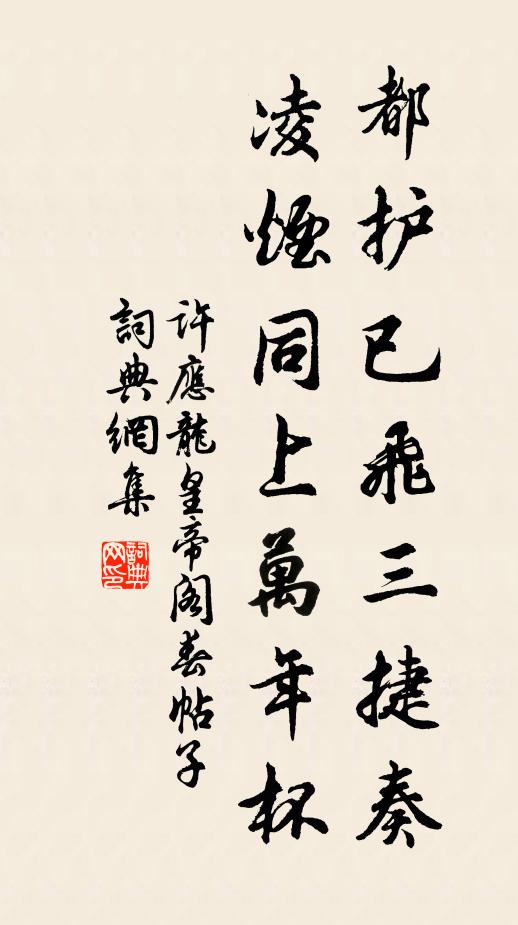 都护已飛三捷奏
凌煙同上萬年杯
许應龍皇帝阁春帖子
詞典網集
詞典网印